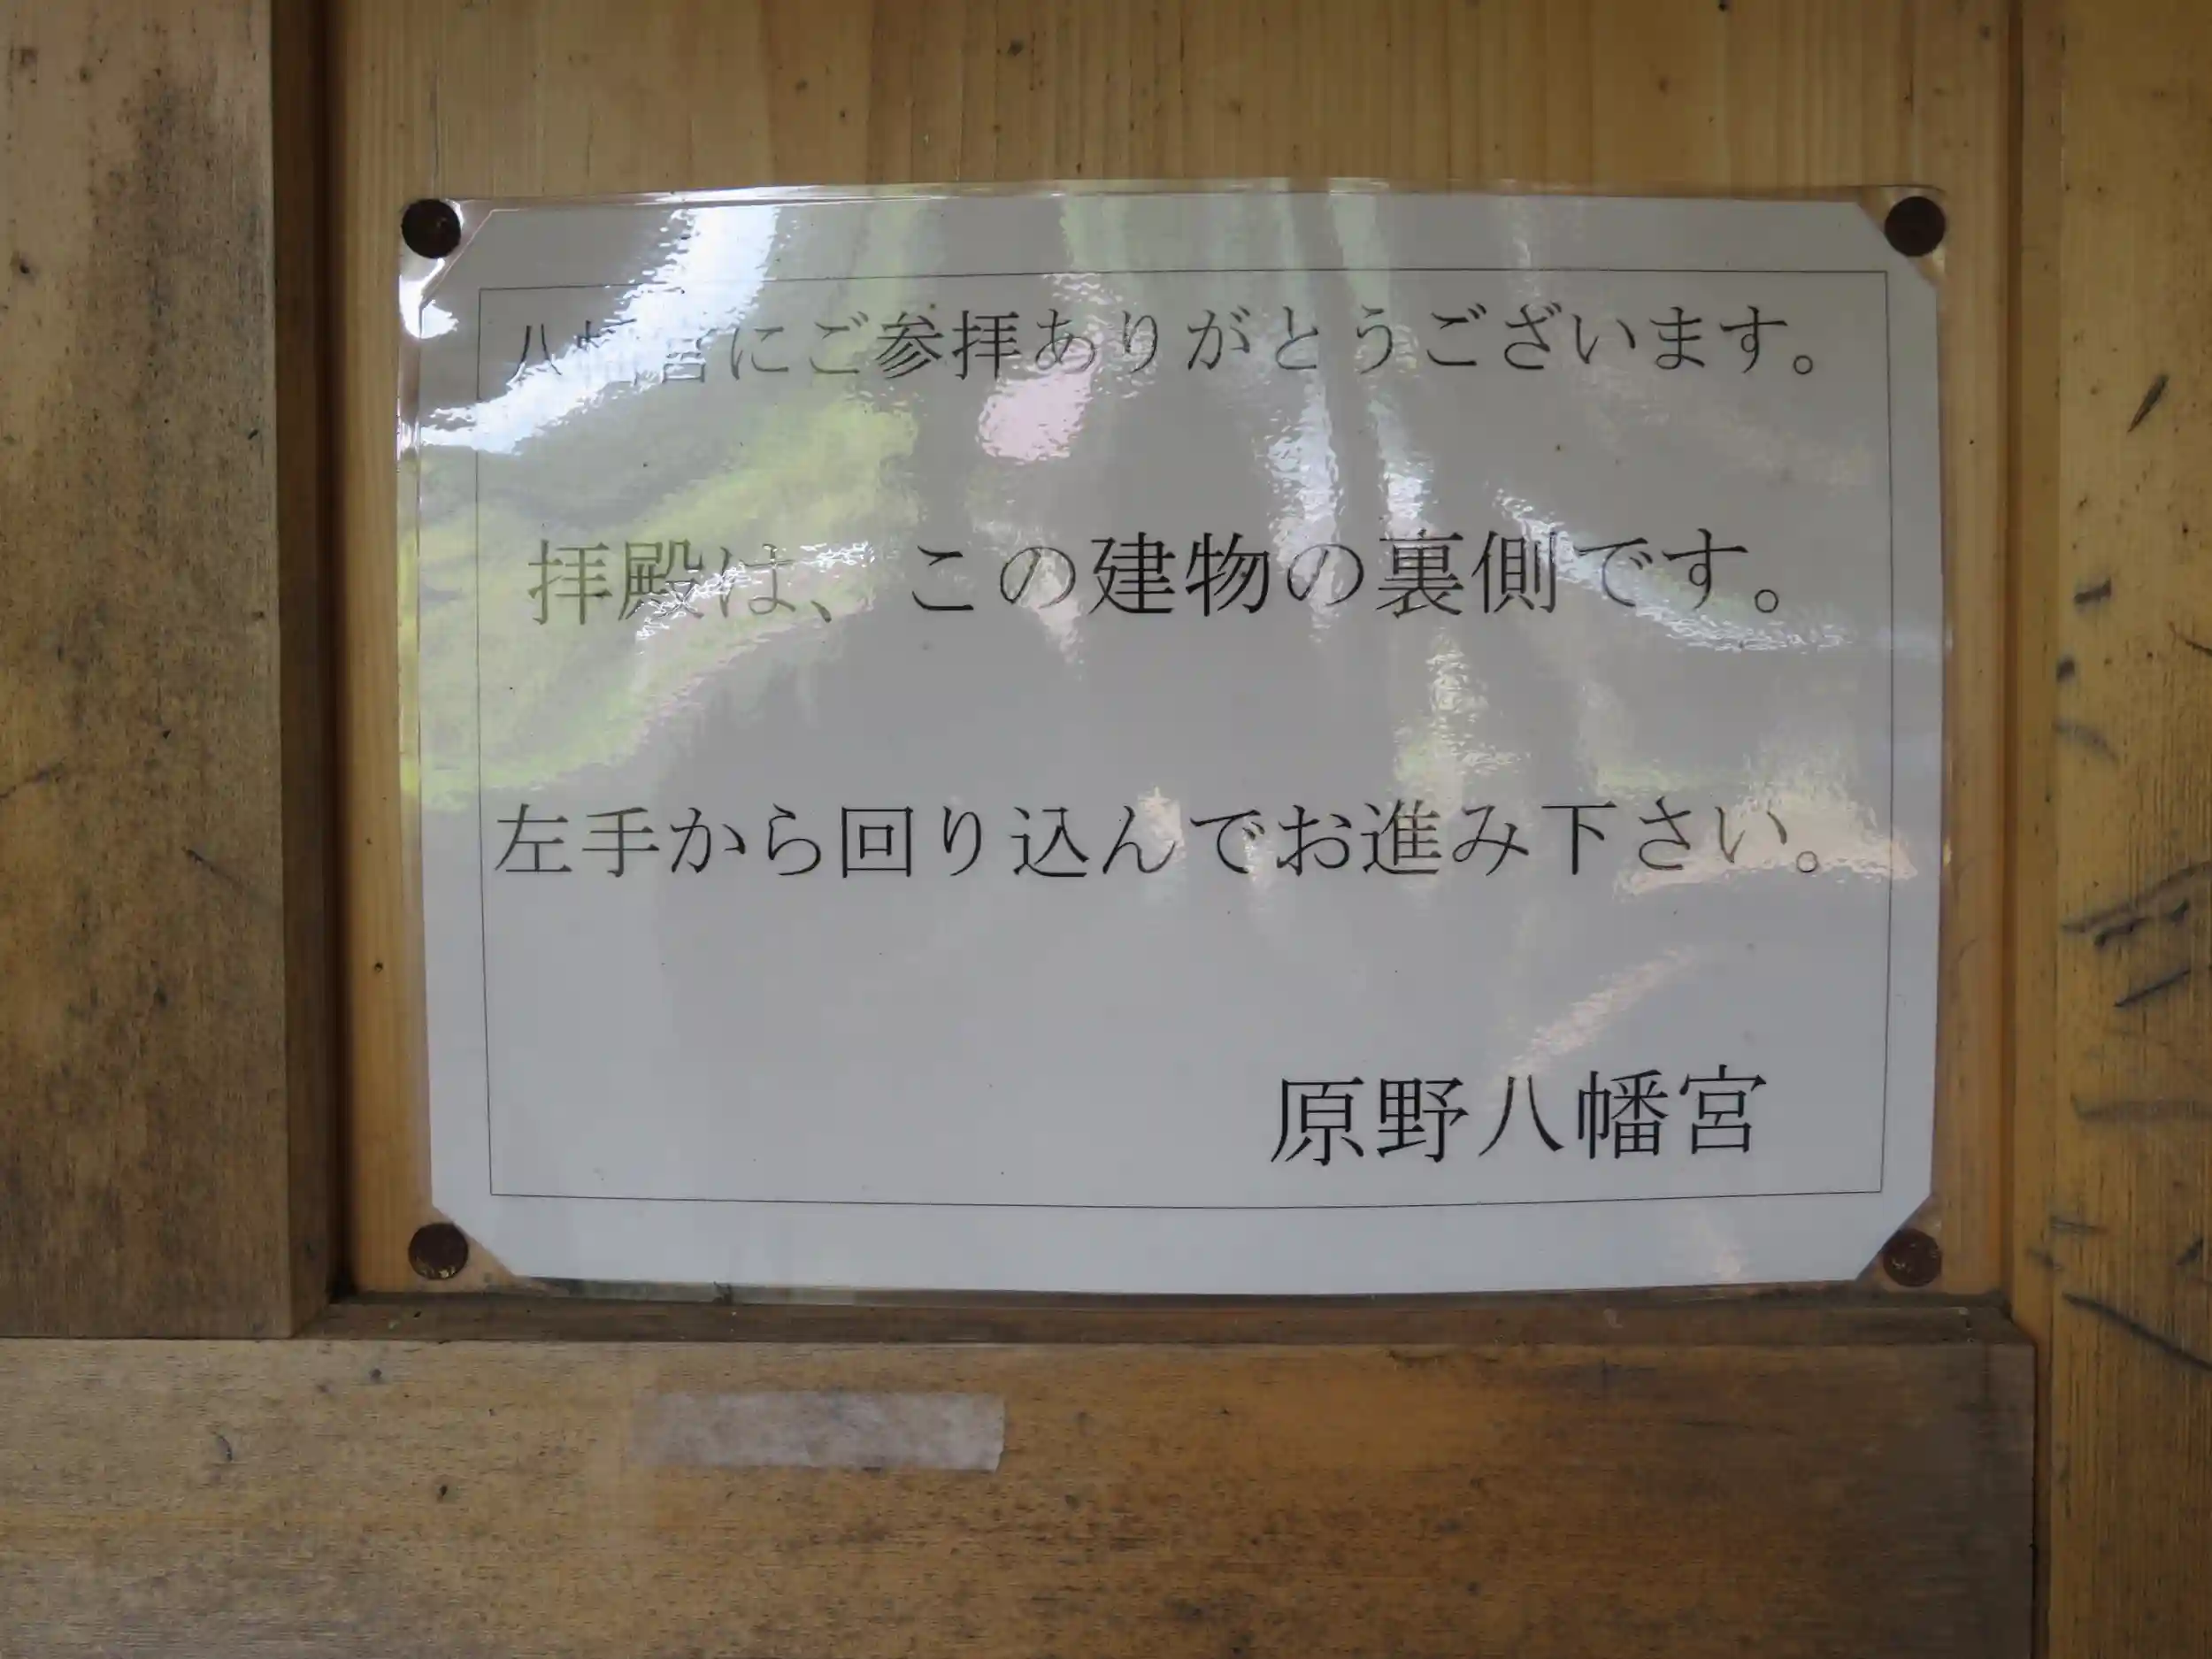 八幡宮にご参拝ありがとうございます。
拝殿は、この建物の裏側です。
左手から回り込んでお進み下さい。
原野八幡宮